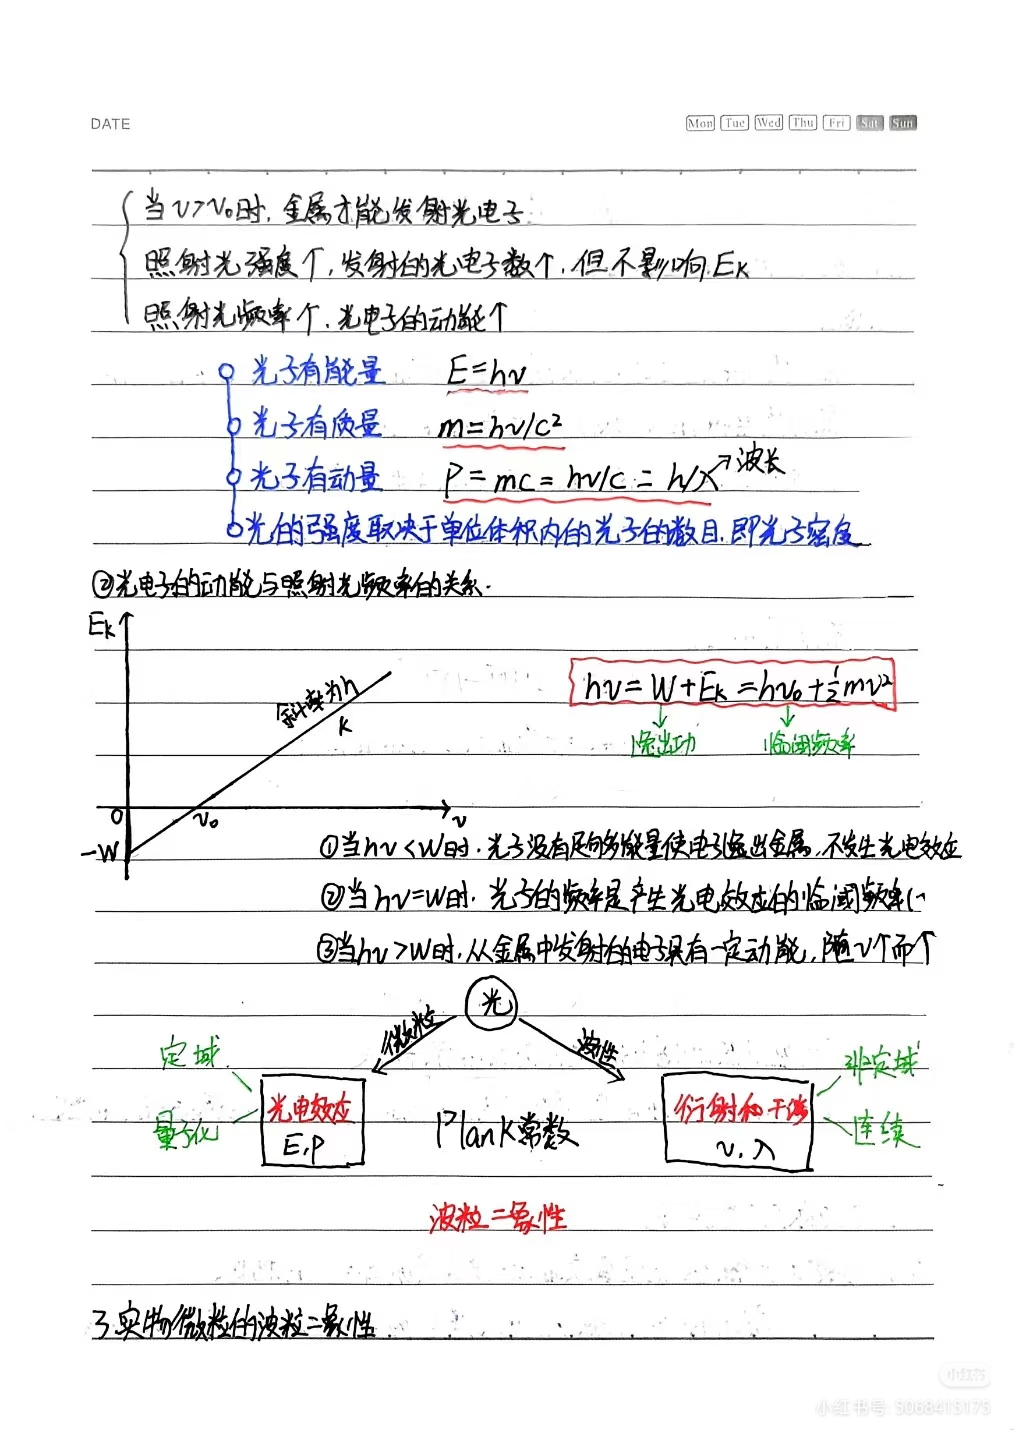 DATE
Mon Tue Wed Thu Fri Sat Sun
当ν>ν₀时,金属才能发射光电子
照射光强度↑,发射的光电子数↑,但不影响Eₖ
照射光频率↑,光电子的动能↑
光子有能量 E=hν
光子有质量 m=hν/c²
光子有动量 P=mc=hν/c=h/λ →波长
光的强度取决于单位体积内的光子的数目,即光子密度
②光电子的动能与照射光频率的关系.
Eₖ
斜率为h
k
hν=W+Eₖ=hν₀+½mv²
逸出功 临阈频率
0 ν₀ ν
-W
①当hν<W时,光子没有足够能量使电子逸出金属,不发生光电效应
②当hν=W时,光子的频率是产生光电效应的临阈频率
③当hν>W时,从金属中发射的电子具有一定动能,随ν↑而↑
光
微粒 波性
定域 非定域
光电效应 衍射和干涉
量子化 连续
E,P Plank常数 ν,λ
波粒二象性
3.实物微粒的波粒二象性
小红书
小红书号: 5068415175